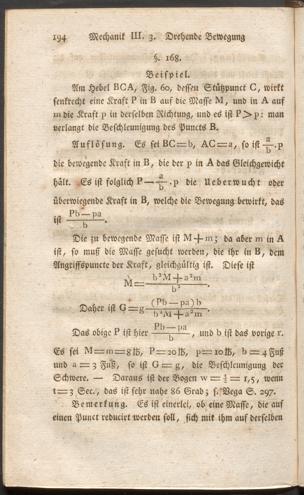 194 Mechanik III. 3. Drehende Bewegung
§. 168.
Beispiel.
Am Hebel BCA, Fig. 60, dessen Stützpunct C, wirkt
senkrecht eine Kraft P in B auf die Masse M, und in A auf
m die Kraft p in derselben Richtung, und es ist P > p: man
verlangt die Beschleunigung des Puncts B.
Auflösung. Es sei BC=b, AC=a, so ist a/b . p
die bewegende Kraft in B, die der p in A das Gleichgewicht
hält. Es ist folglich P — a/b . p die Ueberwucht oder
überwiegende Kraft in B, welche die Bewegung bewirkt, das
ist (Pb — pa)/b .
Die zu bewegende Masse ist M+m; da aber m in A
ist, so muß die Masse gesucht werden, die ihr in B, dem
Angriffspuncte der Kraft, gleichgültig ist. Diese ist
M = (b²M + a²m)/b² .
Daher ist G = g (Pb — pa) b/(b²M + a²m) .
Das obige P ist hier (Pb — pa)/b , und b ist das vorige r.
Es sei M=m=8 ℔, P=20 ℔, p=10 ℔, b=4 Fuß
und a=3 Fuß, so ist G=g, die Beschleunigung der
Schwere. — Daraus ist der Bogen w = = 1,5, wenn
t=3 Sec., das ist sehr nahe 86 Grad; s. Vega S. 297.
Bemerkung. Es ist einerlei, ob eine Masse, die auf
einen Punct reducirt werden soll, sich mit ihm auf derselben